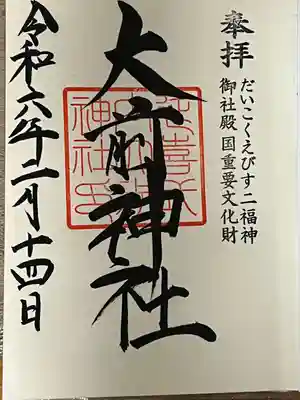 奉拝
だいこくえびす二福神
御社殿国重要文化財
大前神社
令和六年二月十四日